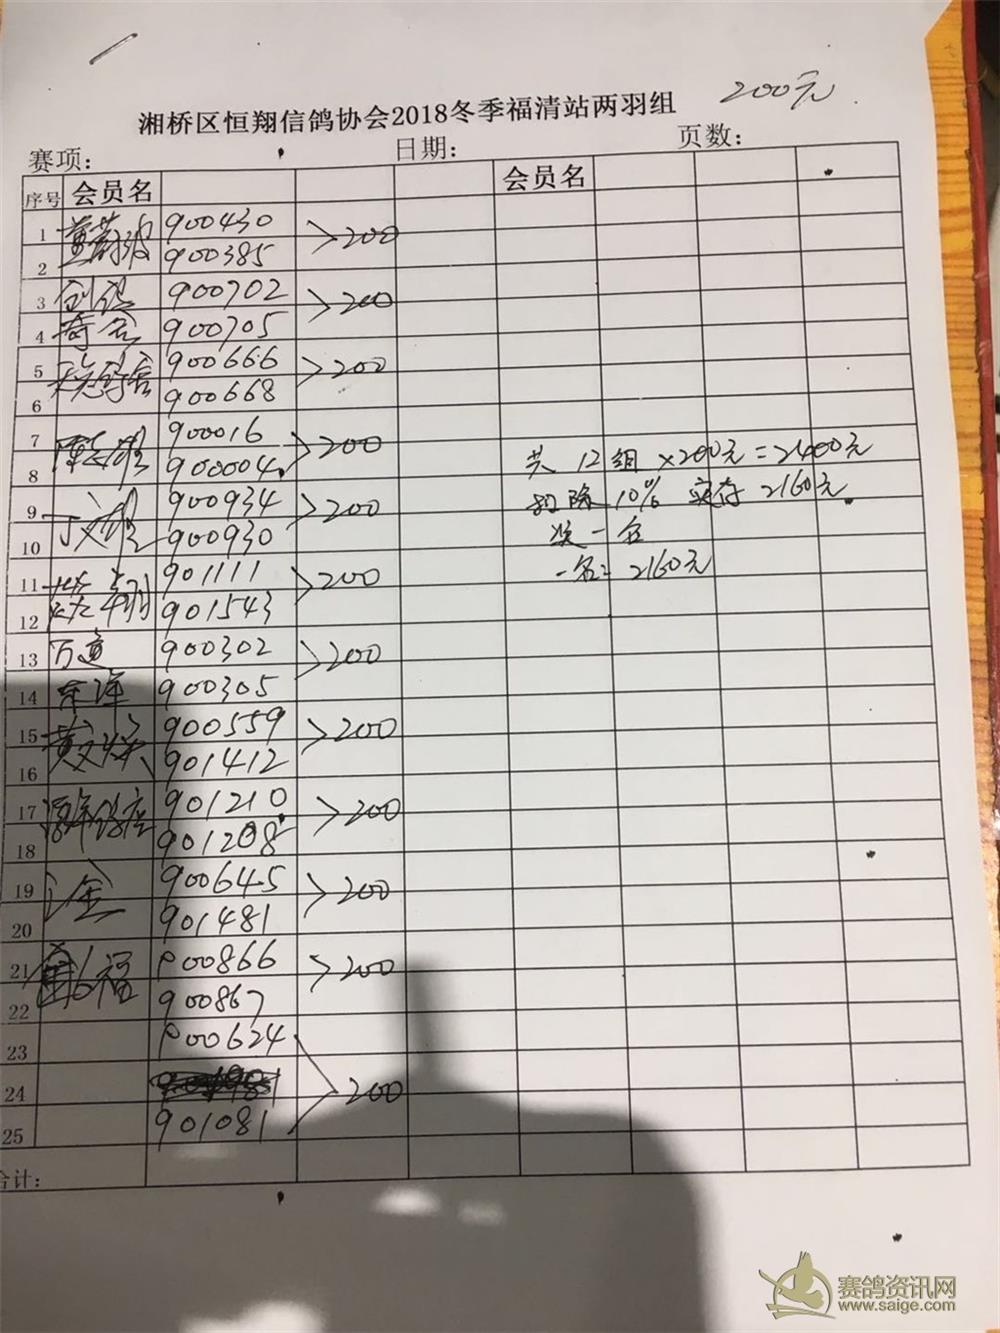 湘桥区恒翔信鸽协会2018冬季福清站两羽组 200元
赛项: 日期: 页数:
序号 会员名 会员名
1 黄蔚波 900430 >200
2 900385
3 创福 900702 >200
4 奇合 900705
5 900666 >200
6 900668
7 陈志雄 900016 >200
8 900004
9 丁文雄 900934 >200
10 900930
11 901111 >200
12 901543
13 万通 900302 >200
14 车洋 900305
15 黄文 900559 >200
16 901412
17 901210 >200
18 901208
19 900645 >200
20 901481
21 福 900866 >200
22 900867
23 900624
24 >200
25 901081
合计:
共 12组 ×200元=2400元
扣除 10% 实存 2160元
奖一名
一名: 2160元
赛鸽资讯网
www.saige.com